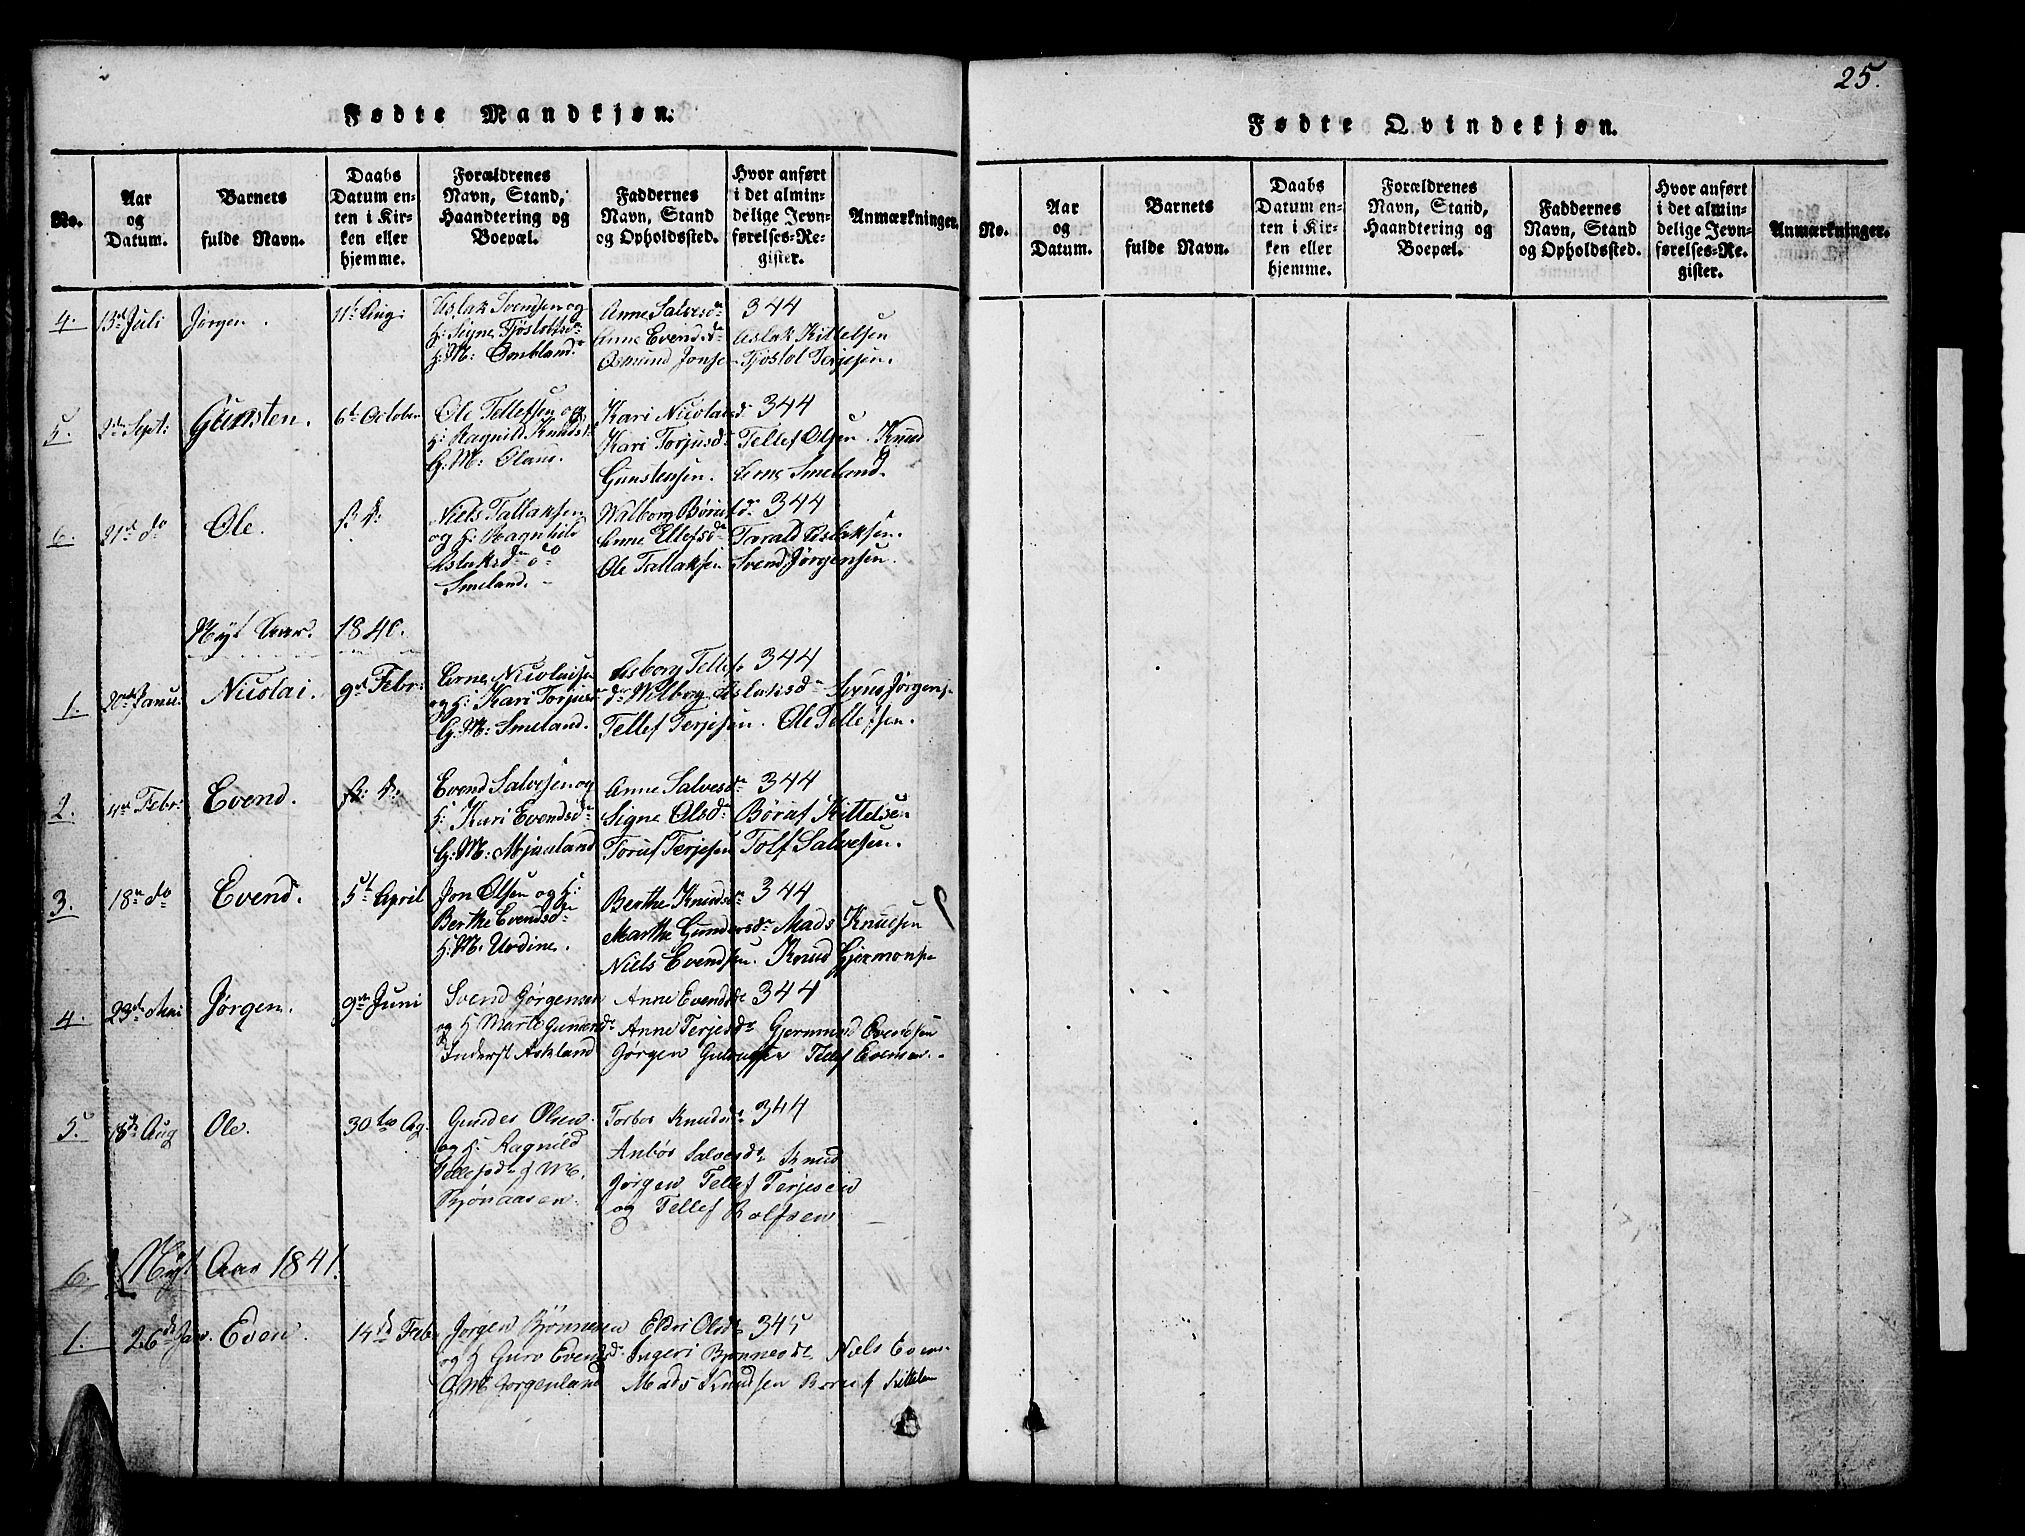 Fødte Mandkjøn.
No.
Aar
og
Datum.
Barnets
fulde Navn.
Daabs
Datum en-
ten i Kir-
ken eller
hjemme.
Forældrenes
Navn, Stand,
Haandtering og
Boepæl.
Faddernes
Navn, Stand
og Opholdssted.
Hvor anført
i det almin-
delige Jevn-
førelses-Re-
gister.
Anmærkninger.
4. 13de Juli Jørgen. 11te Aug:
Aslak Svendsen og
h: Signe Tjøstolfsdr
G:M: Ombland.
Anne Salvesdr 344
Anne Evendsdr Aslak Kittelsen
Osmund Jonse Tjøstol Terjesen.
5. 2den Sept: Gunsten. 6te October
Ole Tellefsen og
h: Ragnild Knudsd
G:M: Olane.
Kari Nicolaisd 344
Kari Torjusd Tellef Olsen. Knud
Gunstensen. Arne Smeland.
6. 21de do Ole.
Niels Tallaksen
og h: Ragnhild
Aslaksdr
Smeland.
Walborg Børufsdr 344
Anne Ellefsdr Tarald Aslaksen.
Ole Tallaksen Svend Jørgensen.
Nyt Aar. 1840.
1. 20de Janu: Nicolai. 9de Febr:
Arne Nicolaisen
og h: Kari Torjusd
G:M: Smeland.
Asborg Tellefs 344
dr Wilborg Aslaksdr Svend Jørgens.
Tellef Terjesen. Ole Tellefsen.
2. 4de Febr: Evend.
Evend Salvesen og
h: Kari Evendsdr
G:M: Mjaaland
Anne Salvesdr 344
Signe Olsdr Børuf Kittelsen
Toruf Terjesen Tolf Salvesen.
3. 18de do Evend. 5te April
Jon Olsen og h:
Berthe Evendsdr
h:M: Urdine.
Berthe Knudsdr 344
Marthe Gundersdr Mads Knudsen
Niels Evendsen. Knud Gjermonse
4. 23de Mai Jørgen. 9de Juni
Svend Jørgensen
og h Marte Gundersdr
Inderst Askland
Anne Evendsdr 344
Anne Terjesdr Gjermund Evensen
Jørgen Tellef Evensen.
5. 18de Aug Ole. 30te Ag.
Gunder Olsen
og h: Ragnild
Tellefsdr g M.
Bjønaasen
Torbor Knudsdr 344
Anbør Salvesdr Knud
Jørgen Tellef Terjesen
og Tellef Rolfsen
6. Nyt Aar 1841.
1. 26de Jan. Even. 14de Feb.
Jørgen Bjønnesen
og h Guro Evensdr
G M Jorgenland
Eldri Olsdr 345
Ingeri Bjønnesdr Niels Evens
Mads Knudsen Boruf Kittelsen
25.
Fødte Qvindekjøn.
No.
Aar
og
Datum.
Barnets
fulde Navn.
Daabs
Datum en-
ten i Kir-
ken eller
hjemme.
Forældrenes
Navn, Stand,
Haandtering og
Boepæl.
Faddernes
Navn, Stand
og Opholdssted.
Hvor anført
i det almin-
delige Jevn-
førelses-Re-
gister.
Anmærkninger.